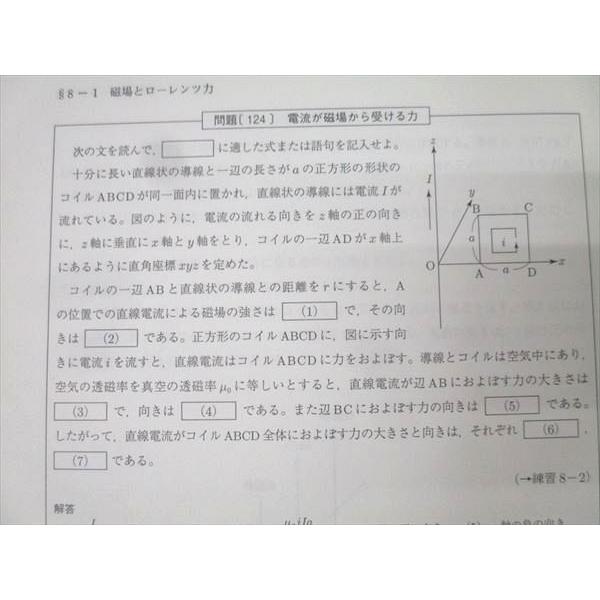 §8－1　磁場とローレンツ力
問題〔124〕　電流が磁場から受ける力
次の文を読んで，　に適した式または語句を記入せよ。
十分に長い直線状の導線と一辺の長さがaの正方形の形状の
コイルABCDが同一面内に置かれ，直線状の導線には電流Iが
流れている。図のように，電流の流れる向きをz軸の正の向き
に，z軸に垂直にx軸とy軸をとり，コイルの一辺ADがx軸上
にあるように直角座標xyzを定めた。
コイルの一辺ABと直線状の導線との距離をrにすると，A
の位置での直線電流による磁場の強さは (1) で，その向
きは (2) である。正方形のコイルABCDに，図に示す向
きに電流iを流すと，直線電流はコイルABCDに力をおよぼす。導線とコイルは空気中にあり，
空気の透磁率を真空の透磁率μ₀に等しいとすると，直線電流が辺ABにおよぼす力の大きさは
(3) で，向きは (4) である。また辺BCにおよぼす力の向きは (5) である。
したがって，直線電流がコイルABCD全体におよぼす力の大きさと向きは，それぞれ (6) ，
(7) である。
z
I
y
B
C
a
i
O
A
a
D
x
(→練習8－2)
解答